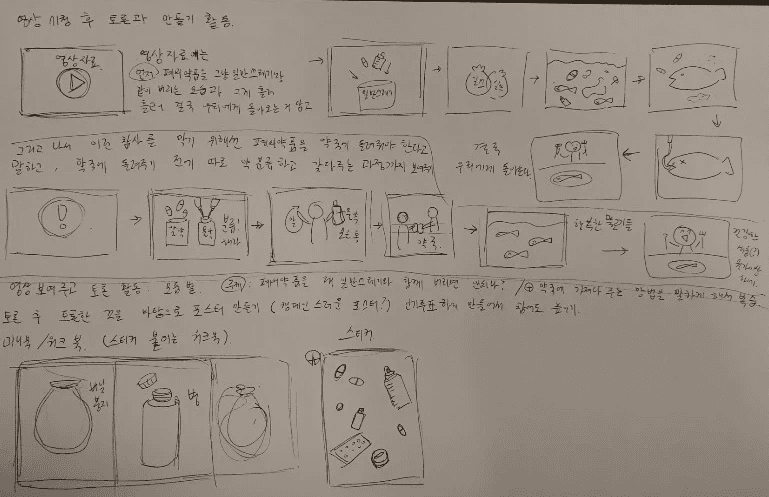 영상 시청 후 토론과 만들기 활동.
영상자료
영상 자료에는
먼저) 폐의약품을 그냥 일반쓰레기와
같이 버리는 모습과 그게 흘러
흘러서 결국 우리에게 돌아오는 거 알고
일반쓰레기
그리고 나서 이런 참사를 막기 위해선 폐의약품을 약국에 돌려줘야 한다고
말하고, 약국에 돌려주기 전에 따로 약 분류하고 갖다주는 과정까지 보여줘
결국
우리에게 돌아온다
알약
물약
분류!
약국
행복한 물고기들
건강한
영상 보여주고 토론 활동: 모둠별. 주제: 폐의약품을 왜 일반쓰레기와 함께 버리면 안되나? / ⊕ 약국에 가져다 주는 방법을 말하게 해서 복습.
토론 후 토론한 것을 바탕으로 포스터 만들기 (캠페인스러운 포스터?) 만들어서
미니북/워크북. (스티커 붙이는 워크북).
스티커
비닐
봉지
병